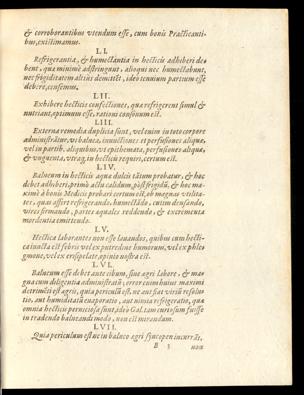 & corroborantibus vtendum esse, cum bonis Practicanti-
bus, existimamus.
LI.
Refrigerantia, & humectantia in hecticis adhiberi de-
bent, quæ minimè adstringunt, alioqui nec humectabunt,
nec frigiditatem altius demittēt, ideo tenuium partium esse
debere, censemus.
LII.
Exhibere hecticis confectiones, quæ refrigerent simul &
nutriant, optimum esse, rationi consonum est.
LIII.
Externa remedia duplicia sunt, vel enim in toto corpore
administrātur, vt balnea, inunctiones et perfusiones aliquæ,
vel in partib. aliquibus, vt epithemata, perfusiones aliquæ,
& vnguenta, vtraq, in hecticis requiri, certum est.
LIV.
Balneum in hecticis aquæ dulcis tātum probatur, & hoc
debet adhiberi, primò actu calidum, pòst frigidū, & hoc ma-
ximè à bonis Medicis probari certum est, ob magnas vtilita-
tes, quas affert refrigerando, humectādo, cutim densando,
vires firmando, partes æquales reddendo, & excrementa
mordentia emittendo.
LV.
Hectica laborantes non esse lauandos, quibus cum hecti-
ca iuncta est febris vel ex putredine humorum, vel ex phle-
gmone, vel ex erisipelate, opinio nostra est.
LVI.
Balneum esse debet ante cibum, sine agri labore, & ma-
gna cum diligentia administratū, error enim huius maximi
detrimēti est agris, quia periculū est, ne aut fiat viriū resolu-
tio, aut humiditatū euaporatio, aut nimia refrigeratio, quæ
omnia hecticis perniciosa sunt, ideo Gal. tam curiosum fuisse
in tradendo balneandi modo, non est mirandum.
LVII.
Quia periculum est ne in balneo agri syncopen incurrāt,
B 3 non